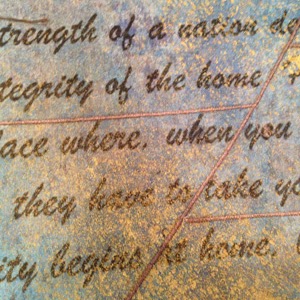 trength of a nation de
tegrity of the home
lace where, when you
they have to take yo
ity begins at home.